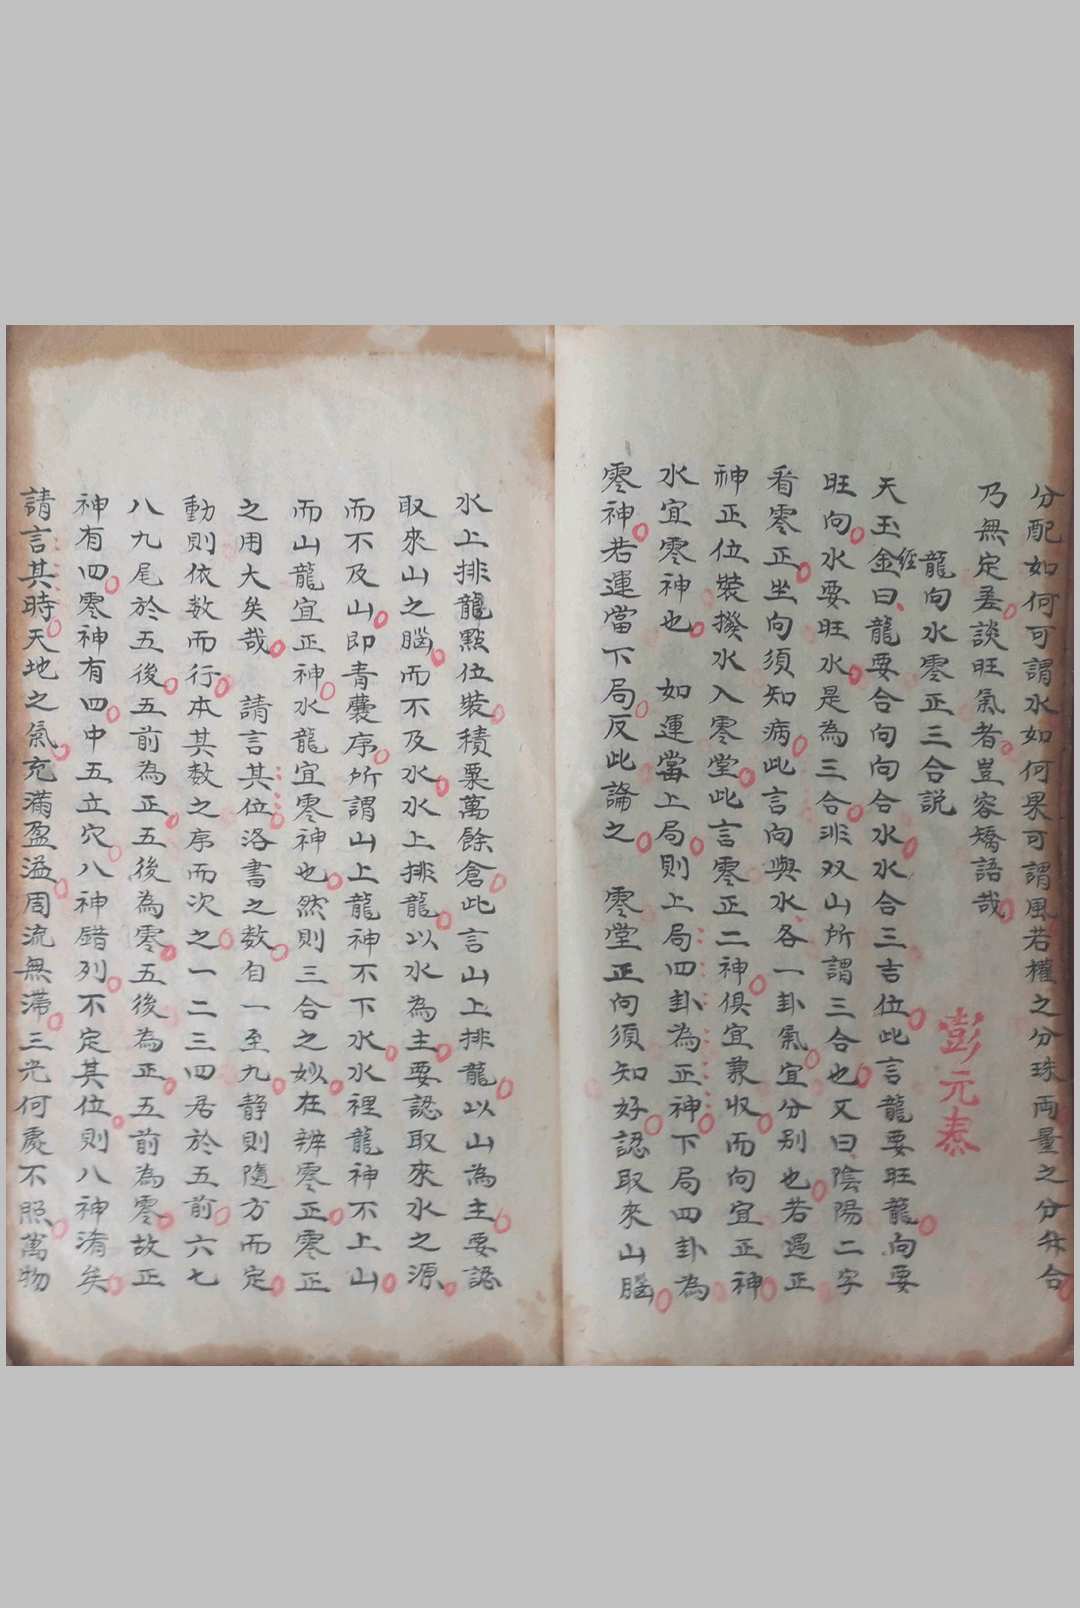 分配如何可謂水如何果可謂風若權之分珠両量之分弁合
乃無定差談旺氣者豈容矯語哉
龍向水零正三合説
彭元泰
天玉金曰龍要合向向合水水合三吉位此言龍要旺龍向要
經
旺向水要旺水是為三合非双山所謂三合也又曰陰陽二字
看零正坐向須知病此言向與水各一卦氣宜分别也若遇正
神正位裝撥水入零堂此言零正二神俱宜兼收而向宜正神
水宜零神也 如運當上局則上局四卦為正神下局四卦為
零神若運當下局反此論之 零堂正向須知好認取來山腦
水上排龍點位裝積粟萬餘倉此言山上排龍以山為主要認
取來山之腦而不及水水上排龍以水為主要認取來水之源
而不及山即青囊序所謂山上龍神不下水水裡龍神不上山
而山龍宜正神水龍宜零神也然則三合之妙在辨零正零正
之用大矣哉 請言其位洛書之数自一至九静則隨方而定
動則依数而行本其数之序而次之一二三四居於五前六七
八九尾於五後五前為正五後為零五後為正五前為零故正
神有四零神有四中五立穴八神錯列不定其位則八神淆矣
請言其時天地之氣充滿盈溢周流無滯三光何處不照萬物